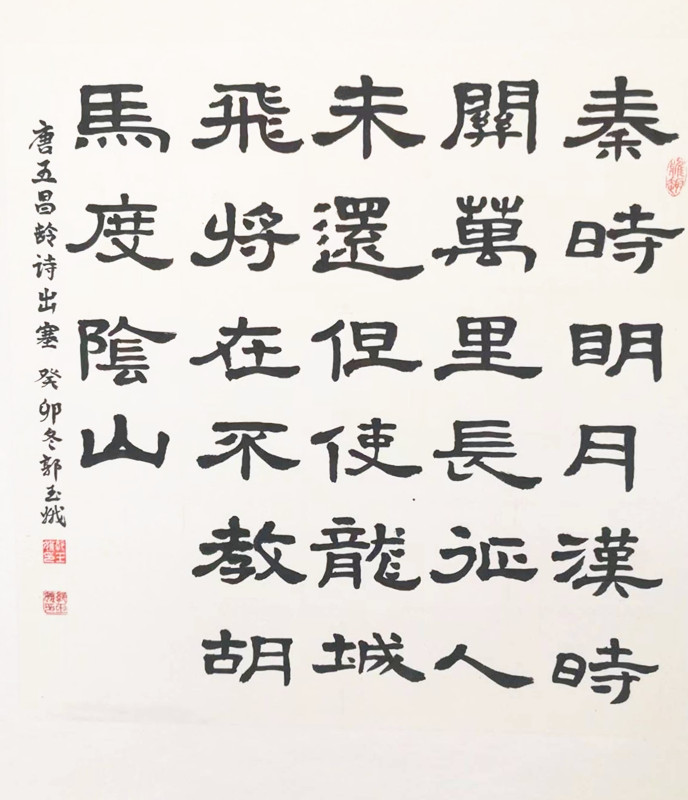 秦時明月漢時
關萬里長征人
未還但使龍城
飛將在不教胡
馬度陰山
唐王昌龄诗出塞 癸卯冬郭玉娥